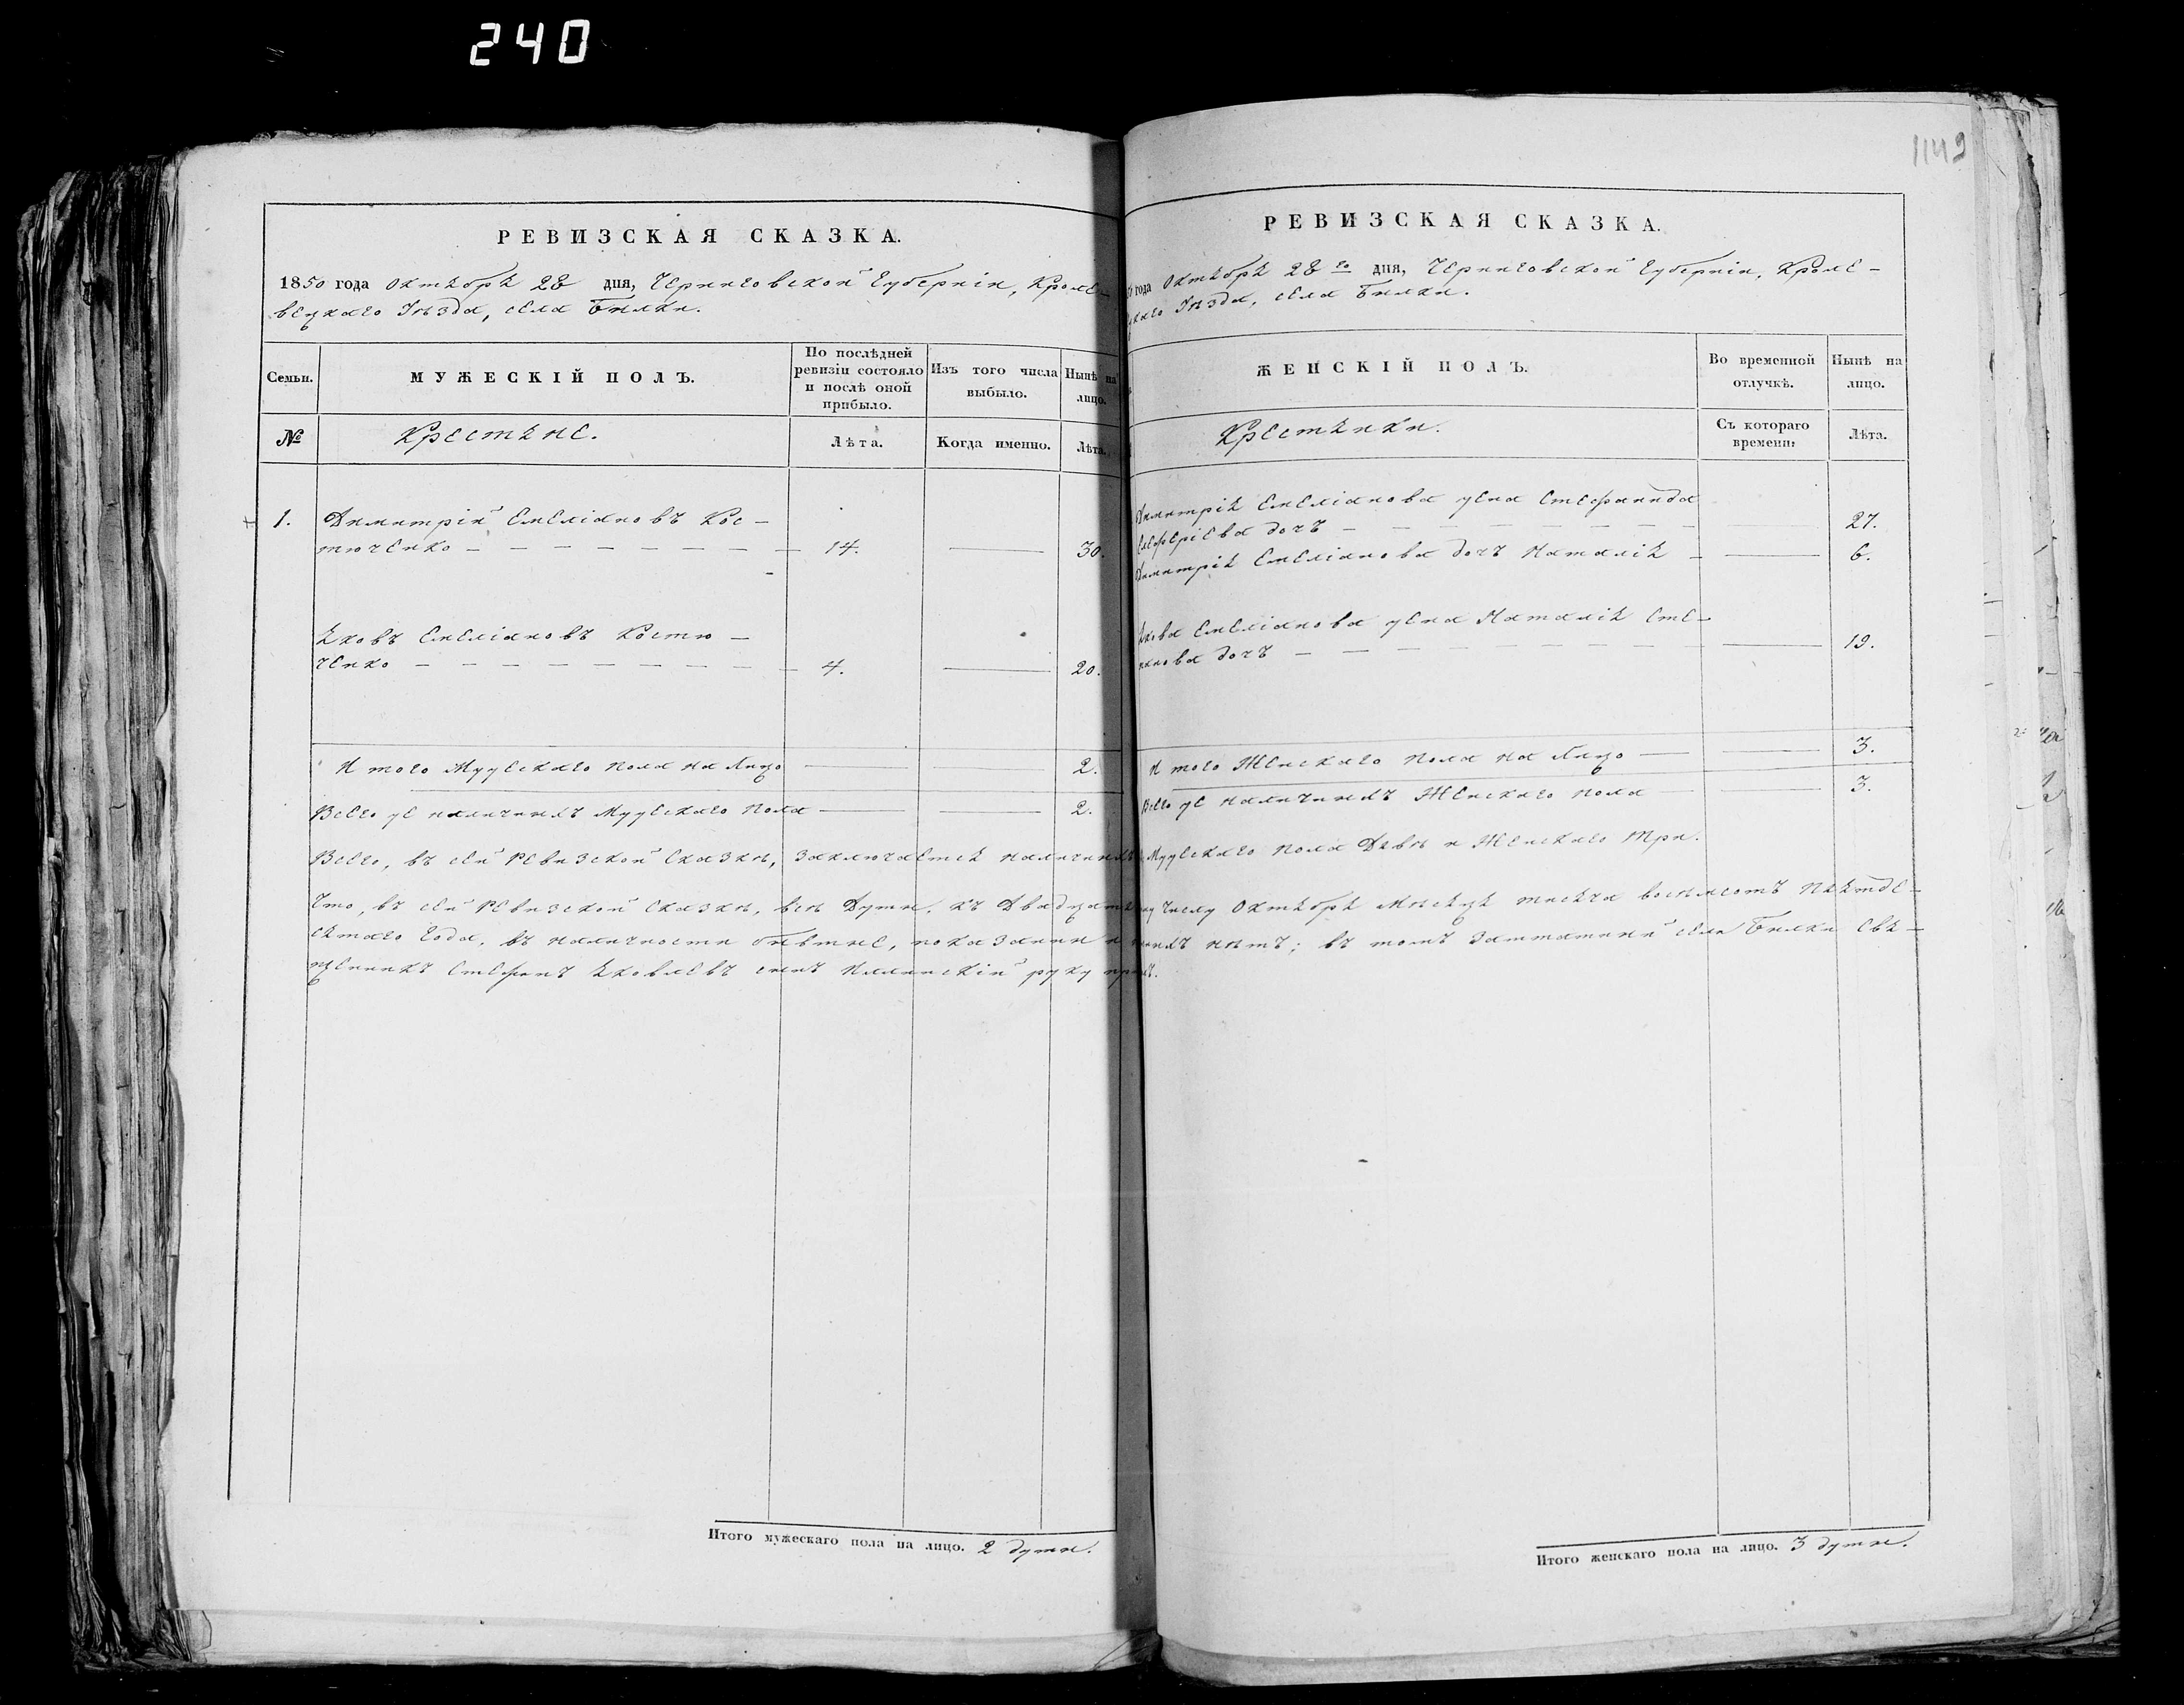 240
1142
РЕВИЗСКАЯ СКАЗКА.
1850 года Октября 28 дня, Черниговской Губерніи, Кроле-
вецкаго Уѣзда, села Билки.
Семьи.
МУЖЕСКІЙ ПОЛЪ.
По послѣдней
ревизіи состояло
и послѣ оной
прибыло.
Изъ того числа
выбыло.
Нынѣ на
лицо.
№
Крестяне.
Лѣта.
Когда именно.
Лѣта.
1. Димитрій Емеліановъ Кос-
тюченко 14. 30.
Яковъ Емеліановъ Костю-
ченко 4. 20.
И того Мужескаго пола на Лицо 2.
Всего же наличныхъ Мужескаго пола 2.
РЕВИЗСКАЯ СКАЗКА.
года Октября 28го дня, Черниговской Губерніи, Кроле-
Уѣзда, села Билки.
ЖЕНСКІЙ ПОЛЪ.
Во временной
отлучкѣ.
Нынѣ на
лицо.
Крестянки.
Съ котораго
времени:
Лѣта.
Димитрія Емеліанова жена Стефанида
Елеферіева дочъ 27.
Димитрія Емеліанова дочъ Наталія 6.
Якова Емеліанова жена Наталія Сте-
панова дочъ 19.
И того Женскаго пола на лицо 3.
Всего же наличныхъ Женскаго пола 3.
Всего, въ сей Ревизской Сказкѣ, заключается наличныхъ Мужескаго пола Двѣ и Женскаго Три.
Что, въ сей Ревизской Сказкѣ, всѣ Души, къ числу Октября Мѣсяця тисяча восѣмсотъ Пятде-
сятаго Года, въ наличности бывшіе, показанни и нѣтъ; въ томъ Заштатный села Билки Свя-
щенникъ Стефанъ Яковлевъ сынъ руку
Итого мужескаго пола на лицо. 2 души.
Итого женскаго пола на лицо. 3 души.